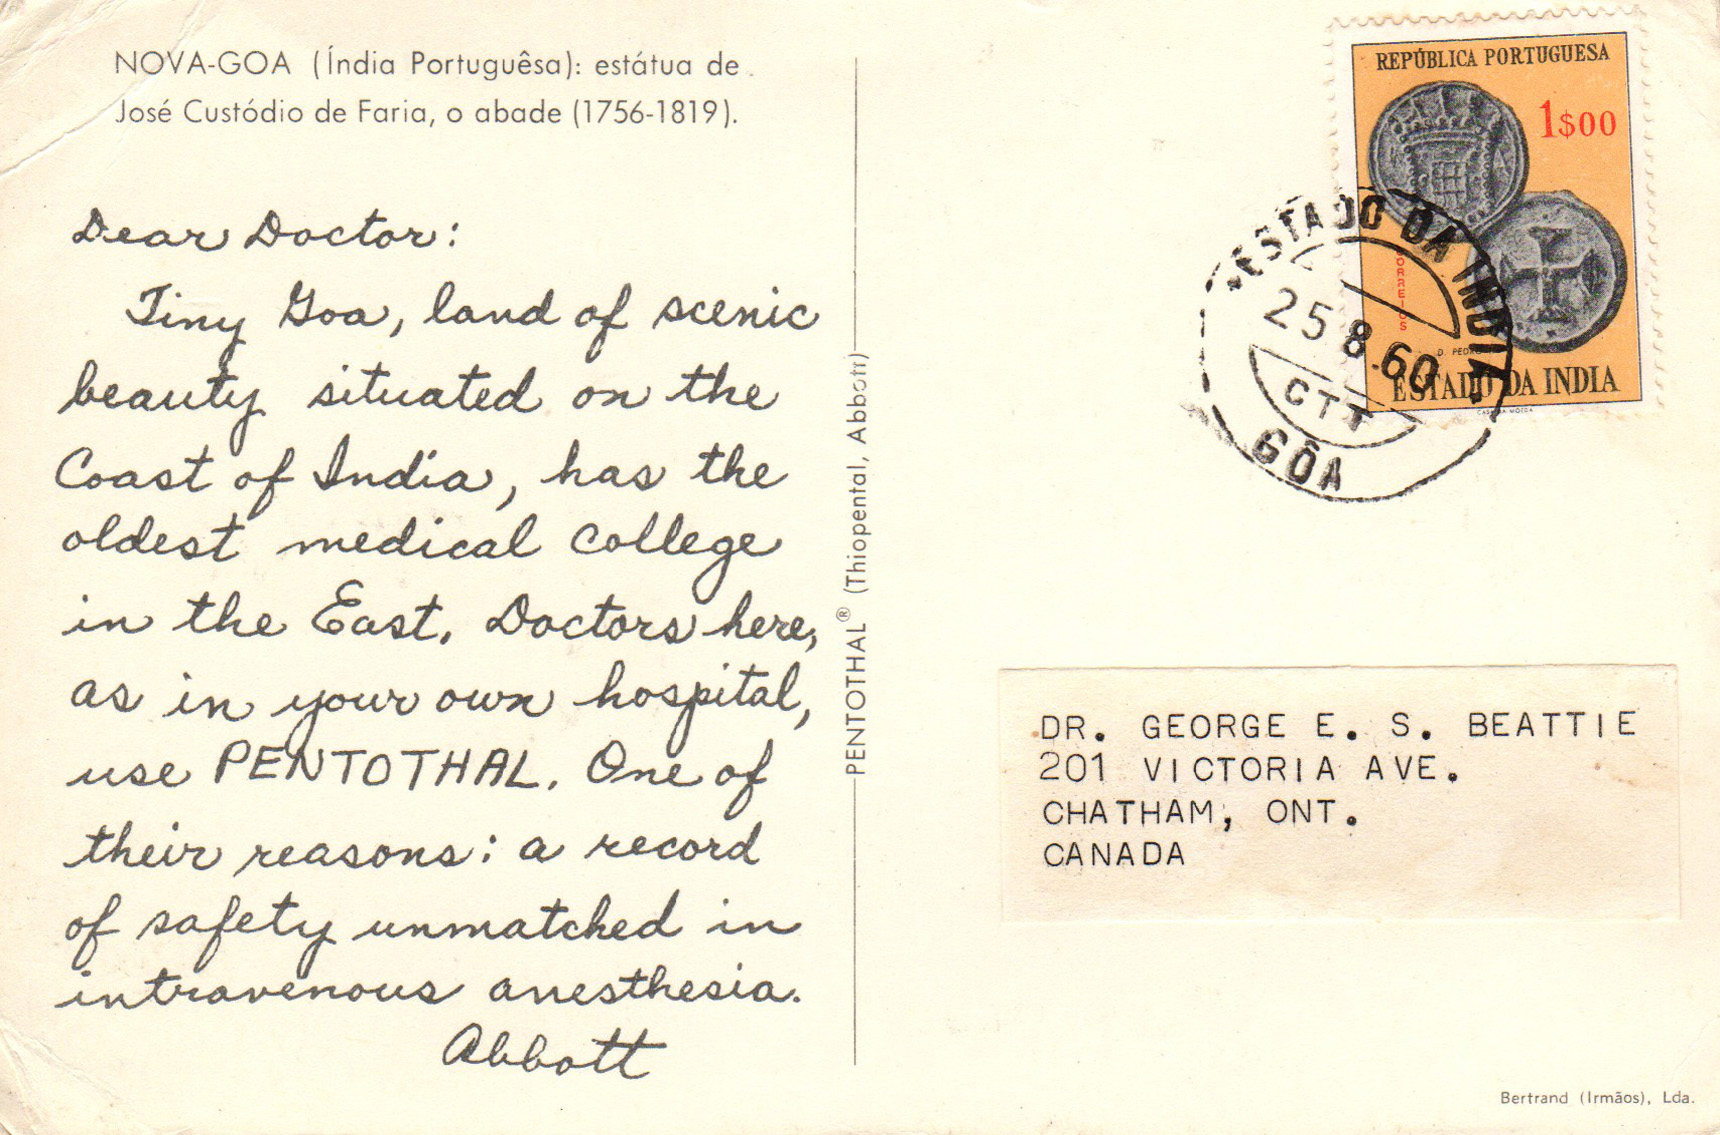 NOVA-GOA (Índia Portuguêsa): estátua de
José Custódio de Faria, o abade (1756-1819).
Dear Doctor:
Tiny Goa, land of scenic
beauty situated on the
Coast of India, has the
oldest medical college
in the East. Doctors here,
as in your own hospital,
use PENTOTHAL. One of
their reasons: a record
of safety unmatched in
intravenous anesthesia.
Abbott
PENTOTHAL® (Thiopental, Abbott)
REPÚBLICA PORTUGUESA
1$00
CORREIOS
D. PEDRO
ESTADO DA INDIA
CASA DA MOEDA
ESTADO DA INDIA
25 8.60
CTT
GÔA
DR. GEORGE E. S. BEATTIE
201 VICTORIA AVE.
CHATHAM, ONT.
CANADA
Bertrand (Irmãos), Lda.